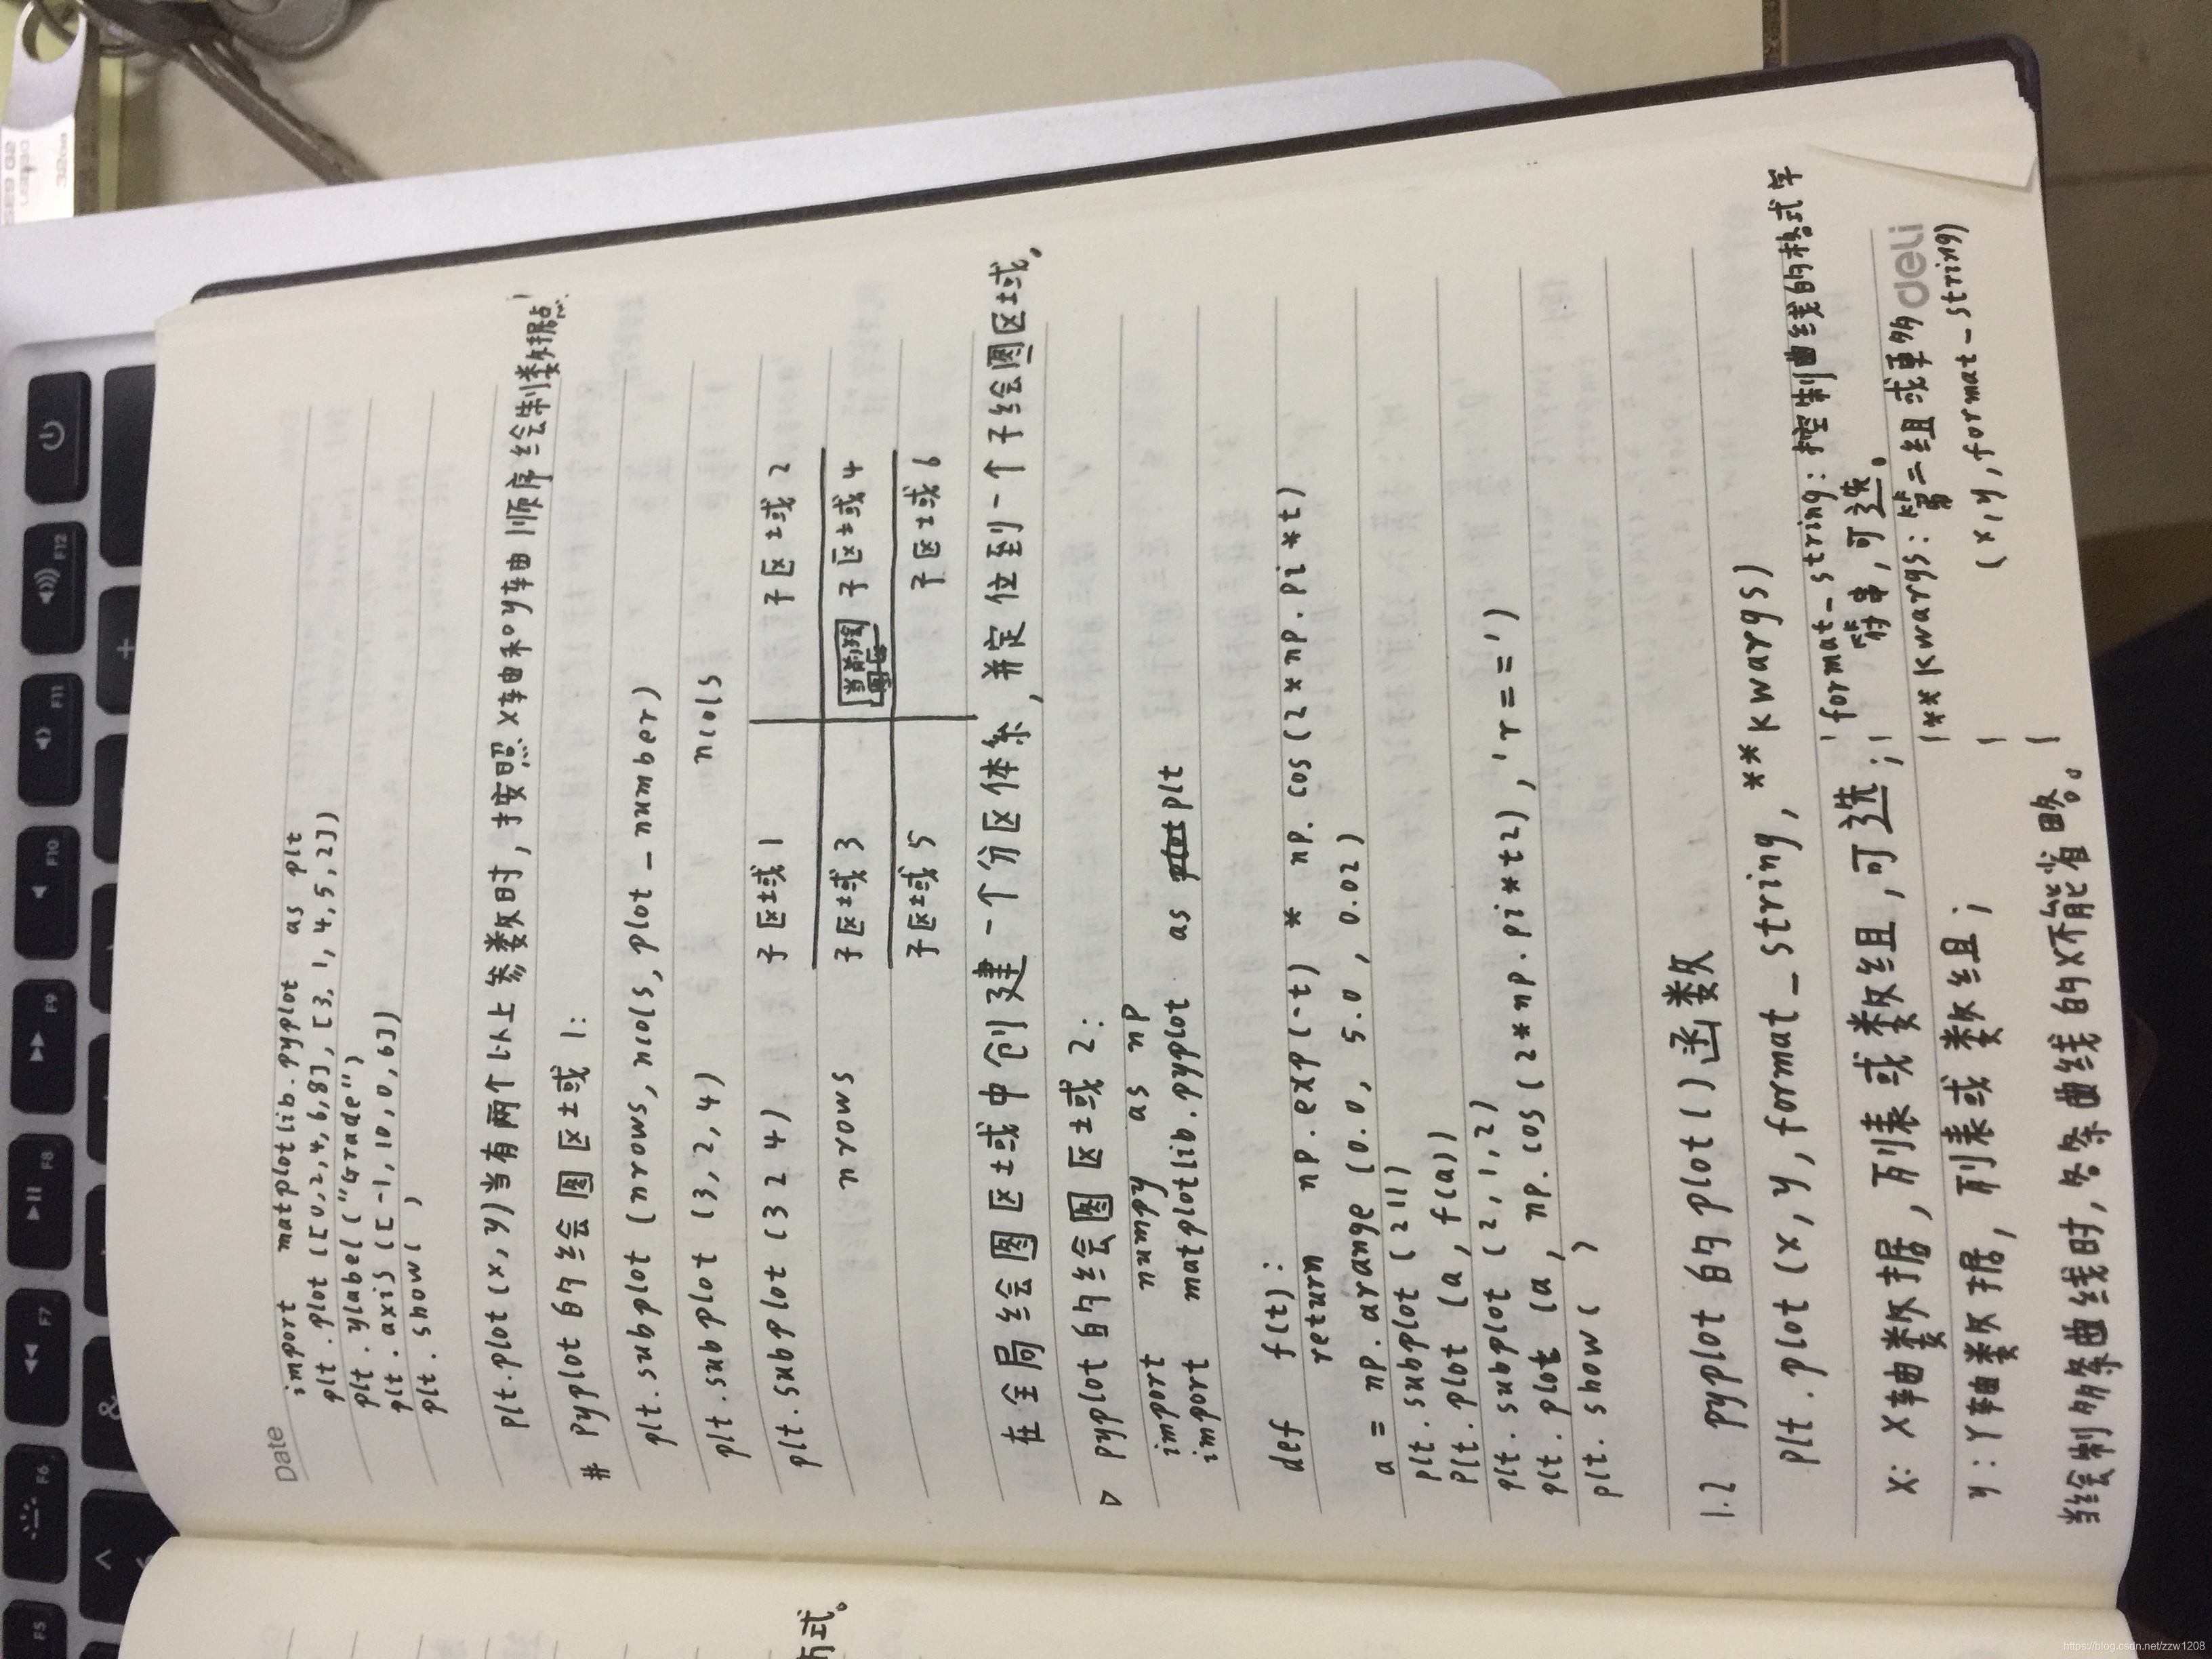 Date
import matplotlib.pyplot as plt
plt.plot([0,2,4,6,8],[3,1,4,5,2])
plt.ylabel("Grade")
plt.axis([-1,10,0,6])
plt.show( )
plt.plot(x,y)当有两个以上参数时,按照x轴和y轴顺序绘制数据点
# pyplot的绘图区域1:
plt.subplot(nrows,ncols,plot_number)
plt.subplot(3,2,4) ncols
plt.subplot(324) 子区域1 子区域2
nrows 子区域3 当前绘图区 子区域4
子区域5 子区域6
在全局绘图区域中创建一个分区体系,并定位到一个子绘图区域。
▷ pyplot的绘图区域2:
import numpy as np
import matplotlib.pyplot as plt
def f(t):
return np.exp(-t) * np.cos(2*np.pi*t)
a = np.arange(0.0, 5.0, 0.02)
plt.subplot(211)
plt.plot(a, f(a))
plt.subplot(2,1,2)
plt.plot(a, np.cos(2*np.pi*t2),'r==')
plt.show( )
1.2 pyplot的plot()函数
plt.plot(x,y,format_string,**kwargs)
x: X轴数据,列表或数组,可选;
y: Y轴数据,列表或数组;
format_string:控制曲线的格式字
符串,可选。
**kwargs:第二组或更多
(x,y,format_string)
当绘制多条曲线时,各条曲线的x不能省略。
deli
方式。
F5
F6
F7
F8
F9
F10
F11
F12
&
^
+
32GB
https://blog.csdn.net/zzw1208